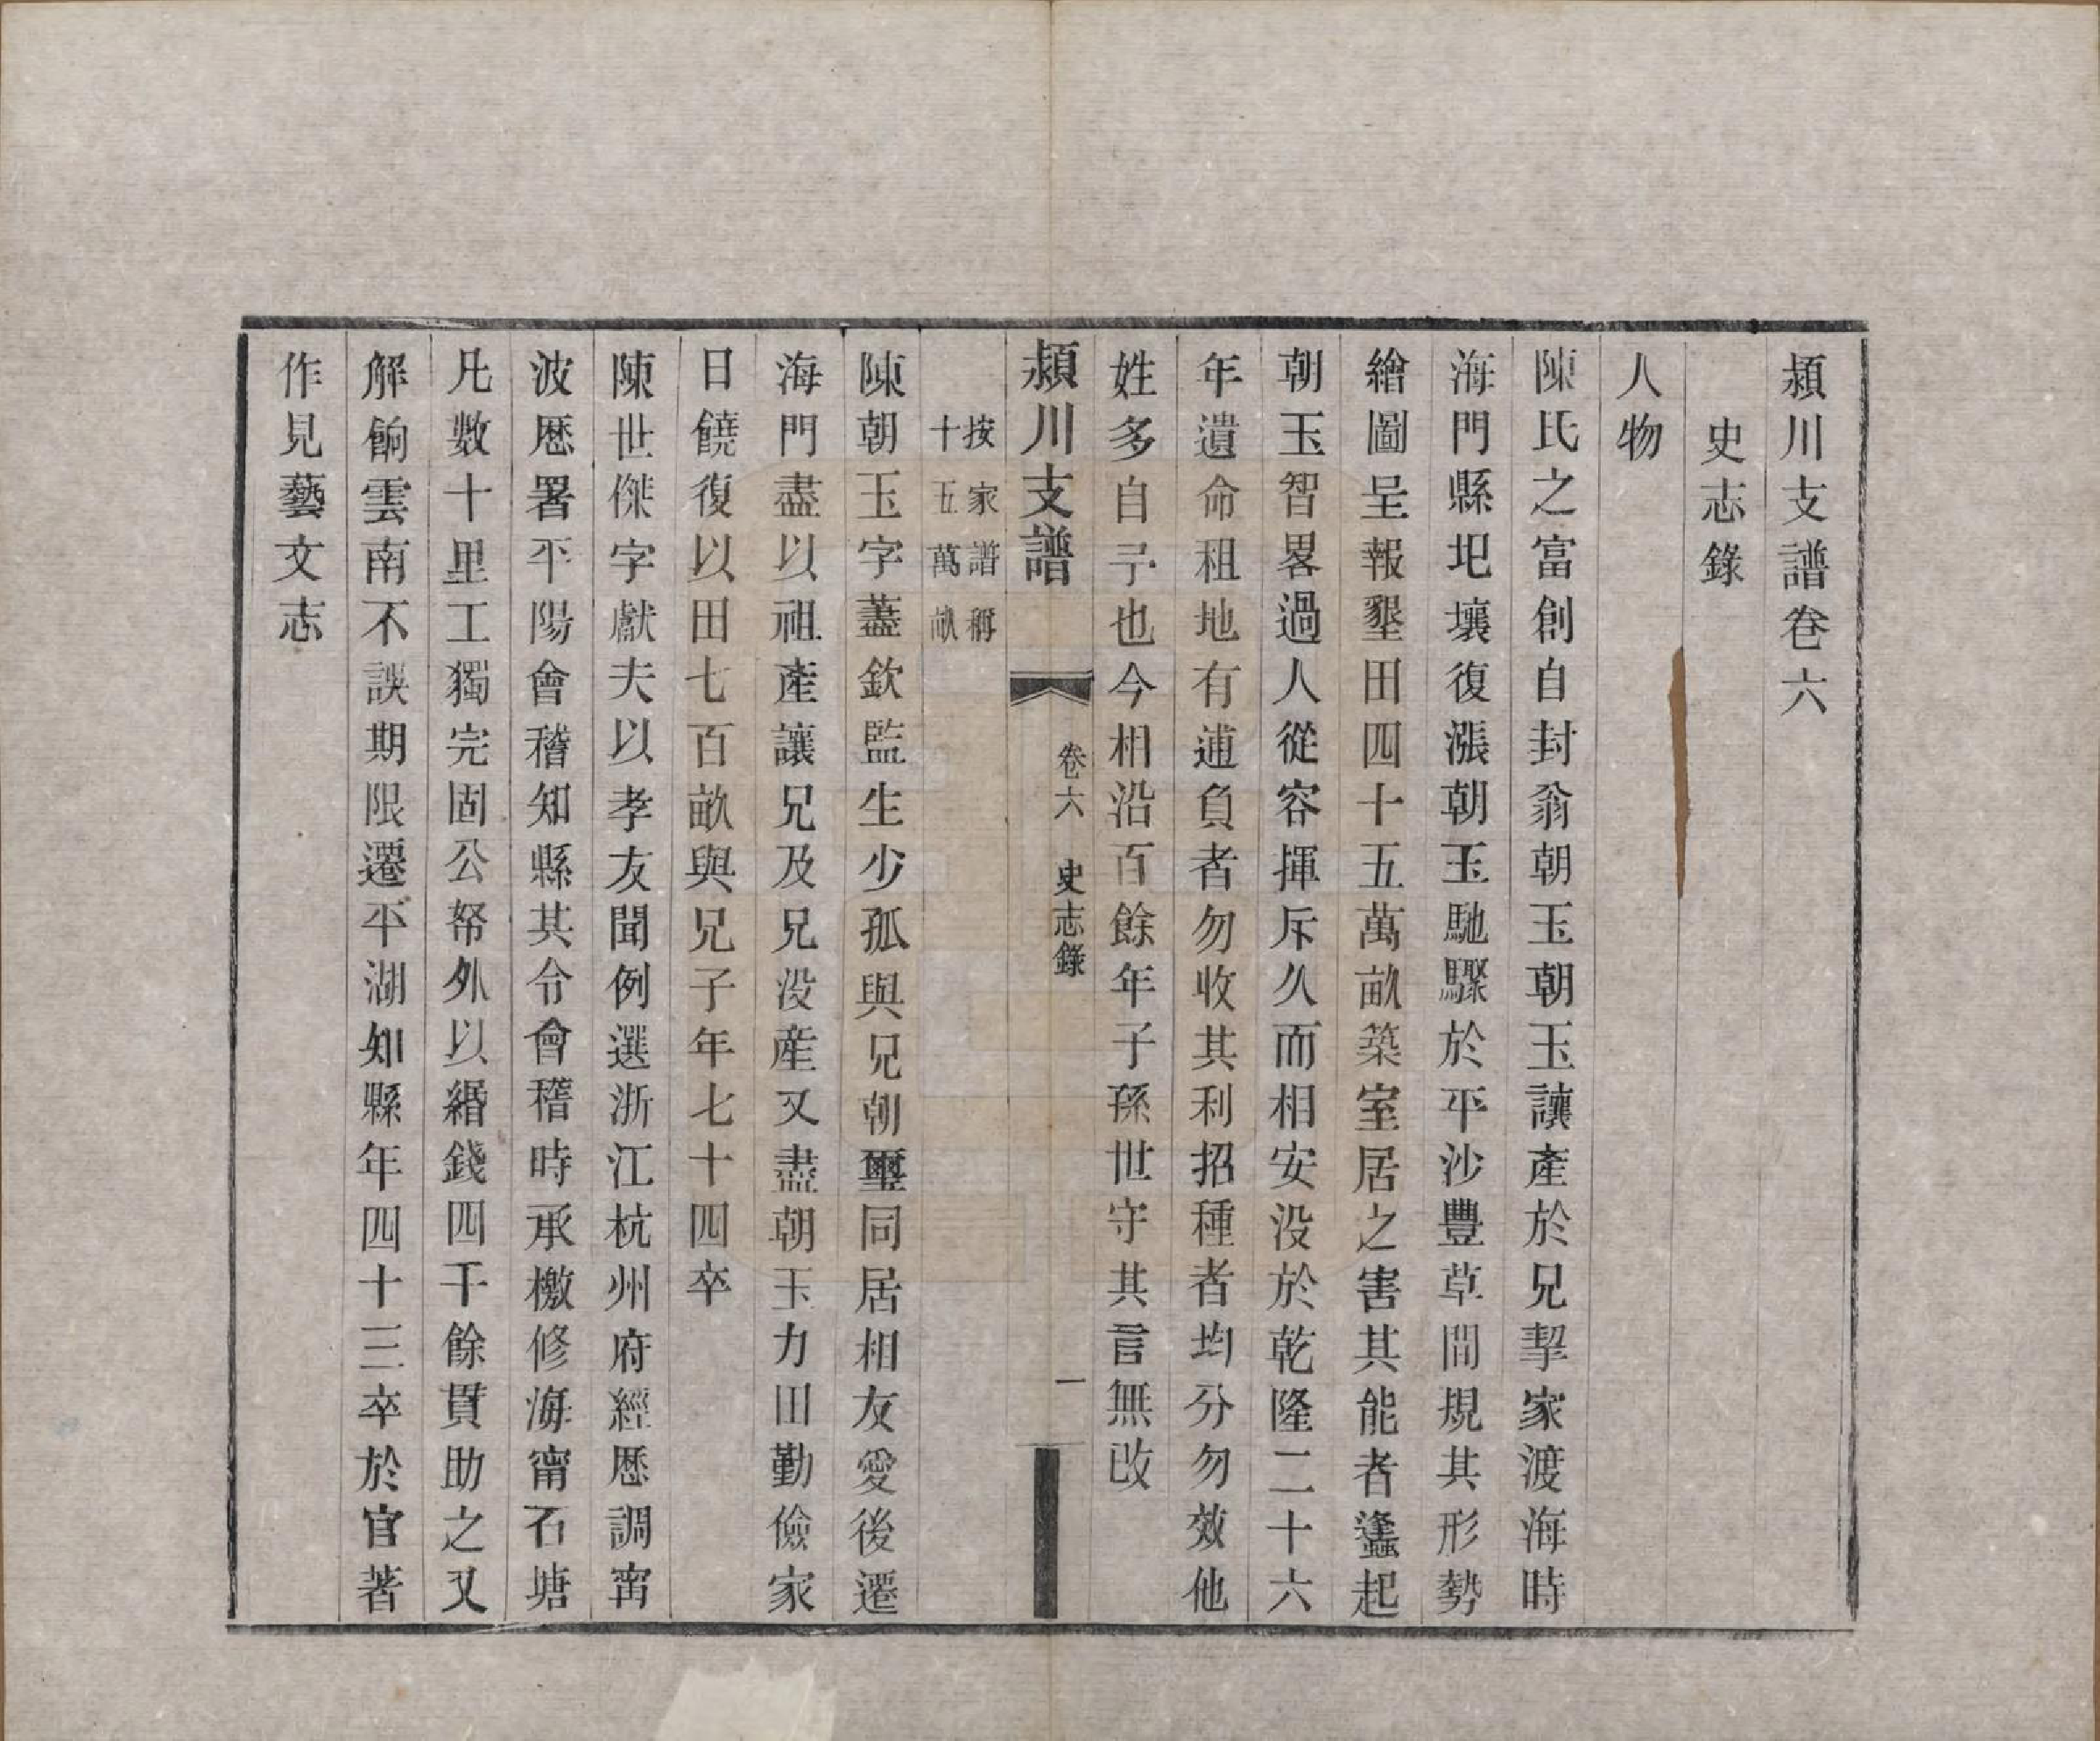 潁川支譜卷六
史志錄
人物
陳氏之富創自封翁朝玉朝玉讓產於兄挈家渡海時
海門縣圯壤復漲朝玉馳驟於平沙豐草間規其形勢
繪圖呈報墾田四十五萬畝築室居之害其能者蠭起
朝玉智畧過人從容揮斥久而相安没於乾隆二十六
年遺命租地有逋負者勿收其利招種者均分勿效他
姓多自予也今相沿百餘年子孫世守其言無改
潁川支譜 卷六 史志錄 一
按家譜稱
十五萬畝
陳朝玉字藎欽監生少孤與兄朝璽同居相友愛後遷
海門盡以祖產讓兄及兄没産又盡朝玉力田勤儉家
日饒復以田七百畝與兄子年七十四卒
陳世傑字獻夫以孝友聞例選浙江杭州府經歷調甯
波歷署平陽會稽知縣其令會稽時承檄修海甯石塘
凡數十里工獨完固公帑外以緡錢四千餘貫助之又
解餉雲南不誤期限遷平湖知縣年四十三卒於官著
作見藝文志